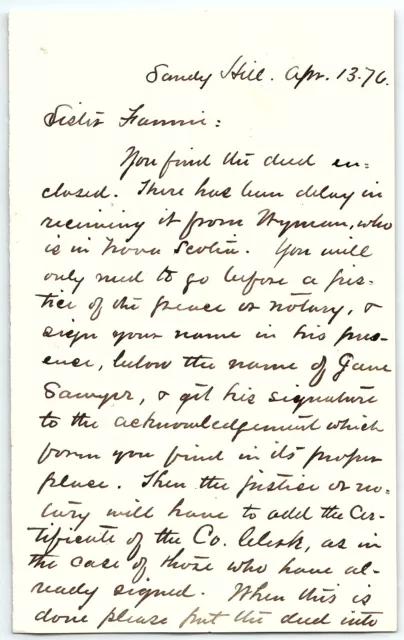 Sandy Hill. Apr. 13. 76.
Sister Fannie:
You find the deed en=
closed. There has been delay in
receiving it from Wyman, who
is in Nova Scotia. You will
only need to go before a jus-
tice of the peace or notary, &
sign your name in his pres-
ence, below the name of Jane
Sawyer, & get his signature
to the acknowledgement which
form you find in its proper
place. Then the justice or no=
tary will have to add the Cer-
tificate of the Co. Clerk, as in
the case of those who have al-
ready signed. When this is
done please put the deed into